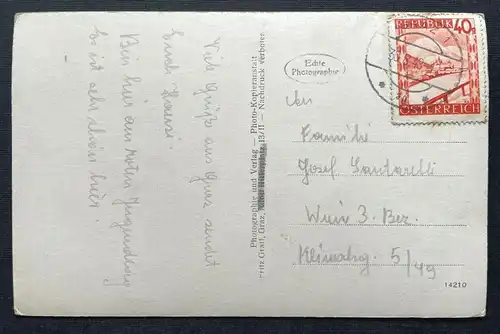 Viele Grüße aus Graz sendet
Euch Hansi
Bin hier am Roten
Es ist sehr schön hier.
Photographie und Verlag — Photo-Kopieranstalt
Fritz Gratl, Graz, 13/II — Nachdruck verboten
Echte
Photographie
REPUBLIK 40g
ÖSTERREICH
An
Familie
Josef Santarelli
Wien 3. Bez.
5/49
14210